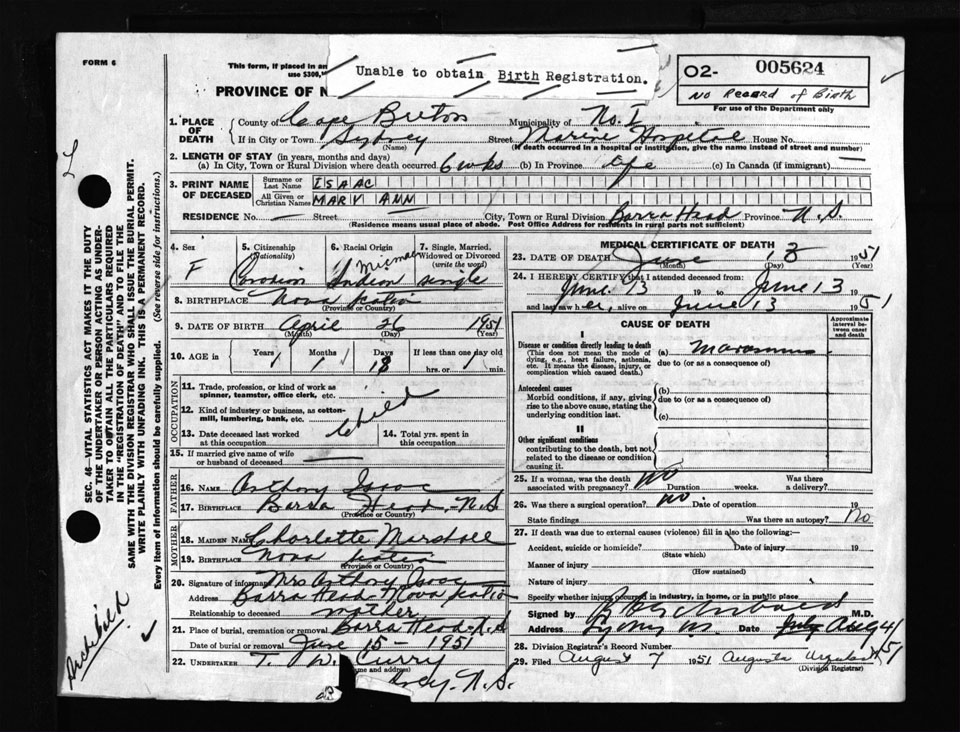 FORM 6
This form, if placed in an
use $300,
Unable to obtain Birth Registration.
O2- 005624
No Record of Birth
For use of the Department only
PROVINCE OF N
1. PLACE OF DEATH
County of Cape Breton Municipality of No. 1
If in City or Town Sydney Street Marine Hospital House No.
(Name) (If death occurred in a hospital or institution, give the name instead of street and number)
2. LENGTH OF STAY (in years, months and days)
(a) In City, Town or Rural Division where death occurred 6 wks (b) In Province life (c) In Canada (if immigrant)
3. PRINT NAME OF DECEASED
Surname or Last Name ISAAC
All Given or Christian Names MARY ANN
RESIDENCE No. — Street City, Town or Rural Division Barra Head Province N.S.
(Residence means usual place of abode. Post Office Address for residents in rural parts not sufficient)
4. Sex F
5. Citizenship (Nationality) Canadian
6. Racial Origin Micmac Indian
7. Single, Married, Widowed or Divorced (write the word) single
8. BIRTHPLACE Nova Scotia
(Province or Country)
9. DATE OF BIRTH April 26 1951
(Month) (Day) (Year)
10. AGE in Years Months Days If less than one day old
1 18
hrs. or min.
OCCUPATION
11. Trade, profession, or kind of work as spinner, teamster, office clerk, etc.
12. Kind of industry or business, as cotton-mill, lumbering, bank, etc.
Child
13. Date deceased last worked at this occupation
14. Total yrs. spent in this occupation
15. If married give name of wife or husband of deceased —
FATHER
16. NAME Anthony Isaac
17. BIRTHPLACE Barra Head - N.S
(Province or Country)
MOTHER
18. MAIDEN NAME Charlotte Marshall
19. BIRTHPLACE Nova Scotia
(Province or Country)
20. Signature of informant Mrs Anthony Isaac
Address Barra Head Nova Scotia
Relationship to deceased mother
21. Place of burial, cremation or removal Barra Head - N.S
Date of burial or removal June 15 - 1951
22. UNDERTAKER T. W. Curry
and address)
N.S.
MEDICAL CERTIFICATE OF DEATH
23. DATE OF DEATH June 13 1951
(Month) (Day)
24. I HEREBY CERTIFY that I attended deceased from:
June 13 19 to June 13 19
and last saw her, alive on June 13 1951
CAUSE OF DEATH
Approximate interval between onset and death
I
Disease or condition directly leading to death
(This does not mean the mode of dying, e.g., heart failure, asthenia, etc. It means the disease, injury, or complication which caused death.)
(a) Marasmus
due to (or as a consequence of)
Antecedent causes
Morbid conditions, if any, giving rise to the above cause, stating the underlying condition last.
(b)
due to (or as a consequence of)
(c)
II
Other significant conditions
contributing to the death, but not related to the disease or condition causing it.
25. If a woman, was the death associated with pregnancy? no Duration weeks. Was there a delivery?
26. Was there a surgical operation? no. Date of operation 19
State findings Was there an autopsy? no
27. If death was due to external causes (violence) fill in also the following:
Accident, suicide or homicide? Date of injury 19
(State which)
Manner of injury
(How sustained)
Nature of injury
Specify whether injury occurred in industry, in home, or in public place
Signed by M.D.
Address Sydney N.S. Date July Aug
28. Division Registrar's Record Number
29. Filed August 7 1951 Augusta
(Division Registrar)
SEC. 46—VITAL STATISTICS ACT MAKES IT THE DUTY
OF THE UNDERTAKER OR PERSON ACTING AS UNDERTAKER
TO OBTAIN ALL THE PARTICULARS REQUIRED
IN THE "REGISTRATION OF DEATH" AND TO FILE THE
SAME WITH THE DIVISION REGISTRAR WHO SHALL ISSUE THE BURIAL PERMIT.
WRITE PLAINLY WITH UNFADING INK. THIS IS A PERMANENT RECORD.
Every item of information should be carefully supplied. (See reverse side for instructions.)
Archibald